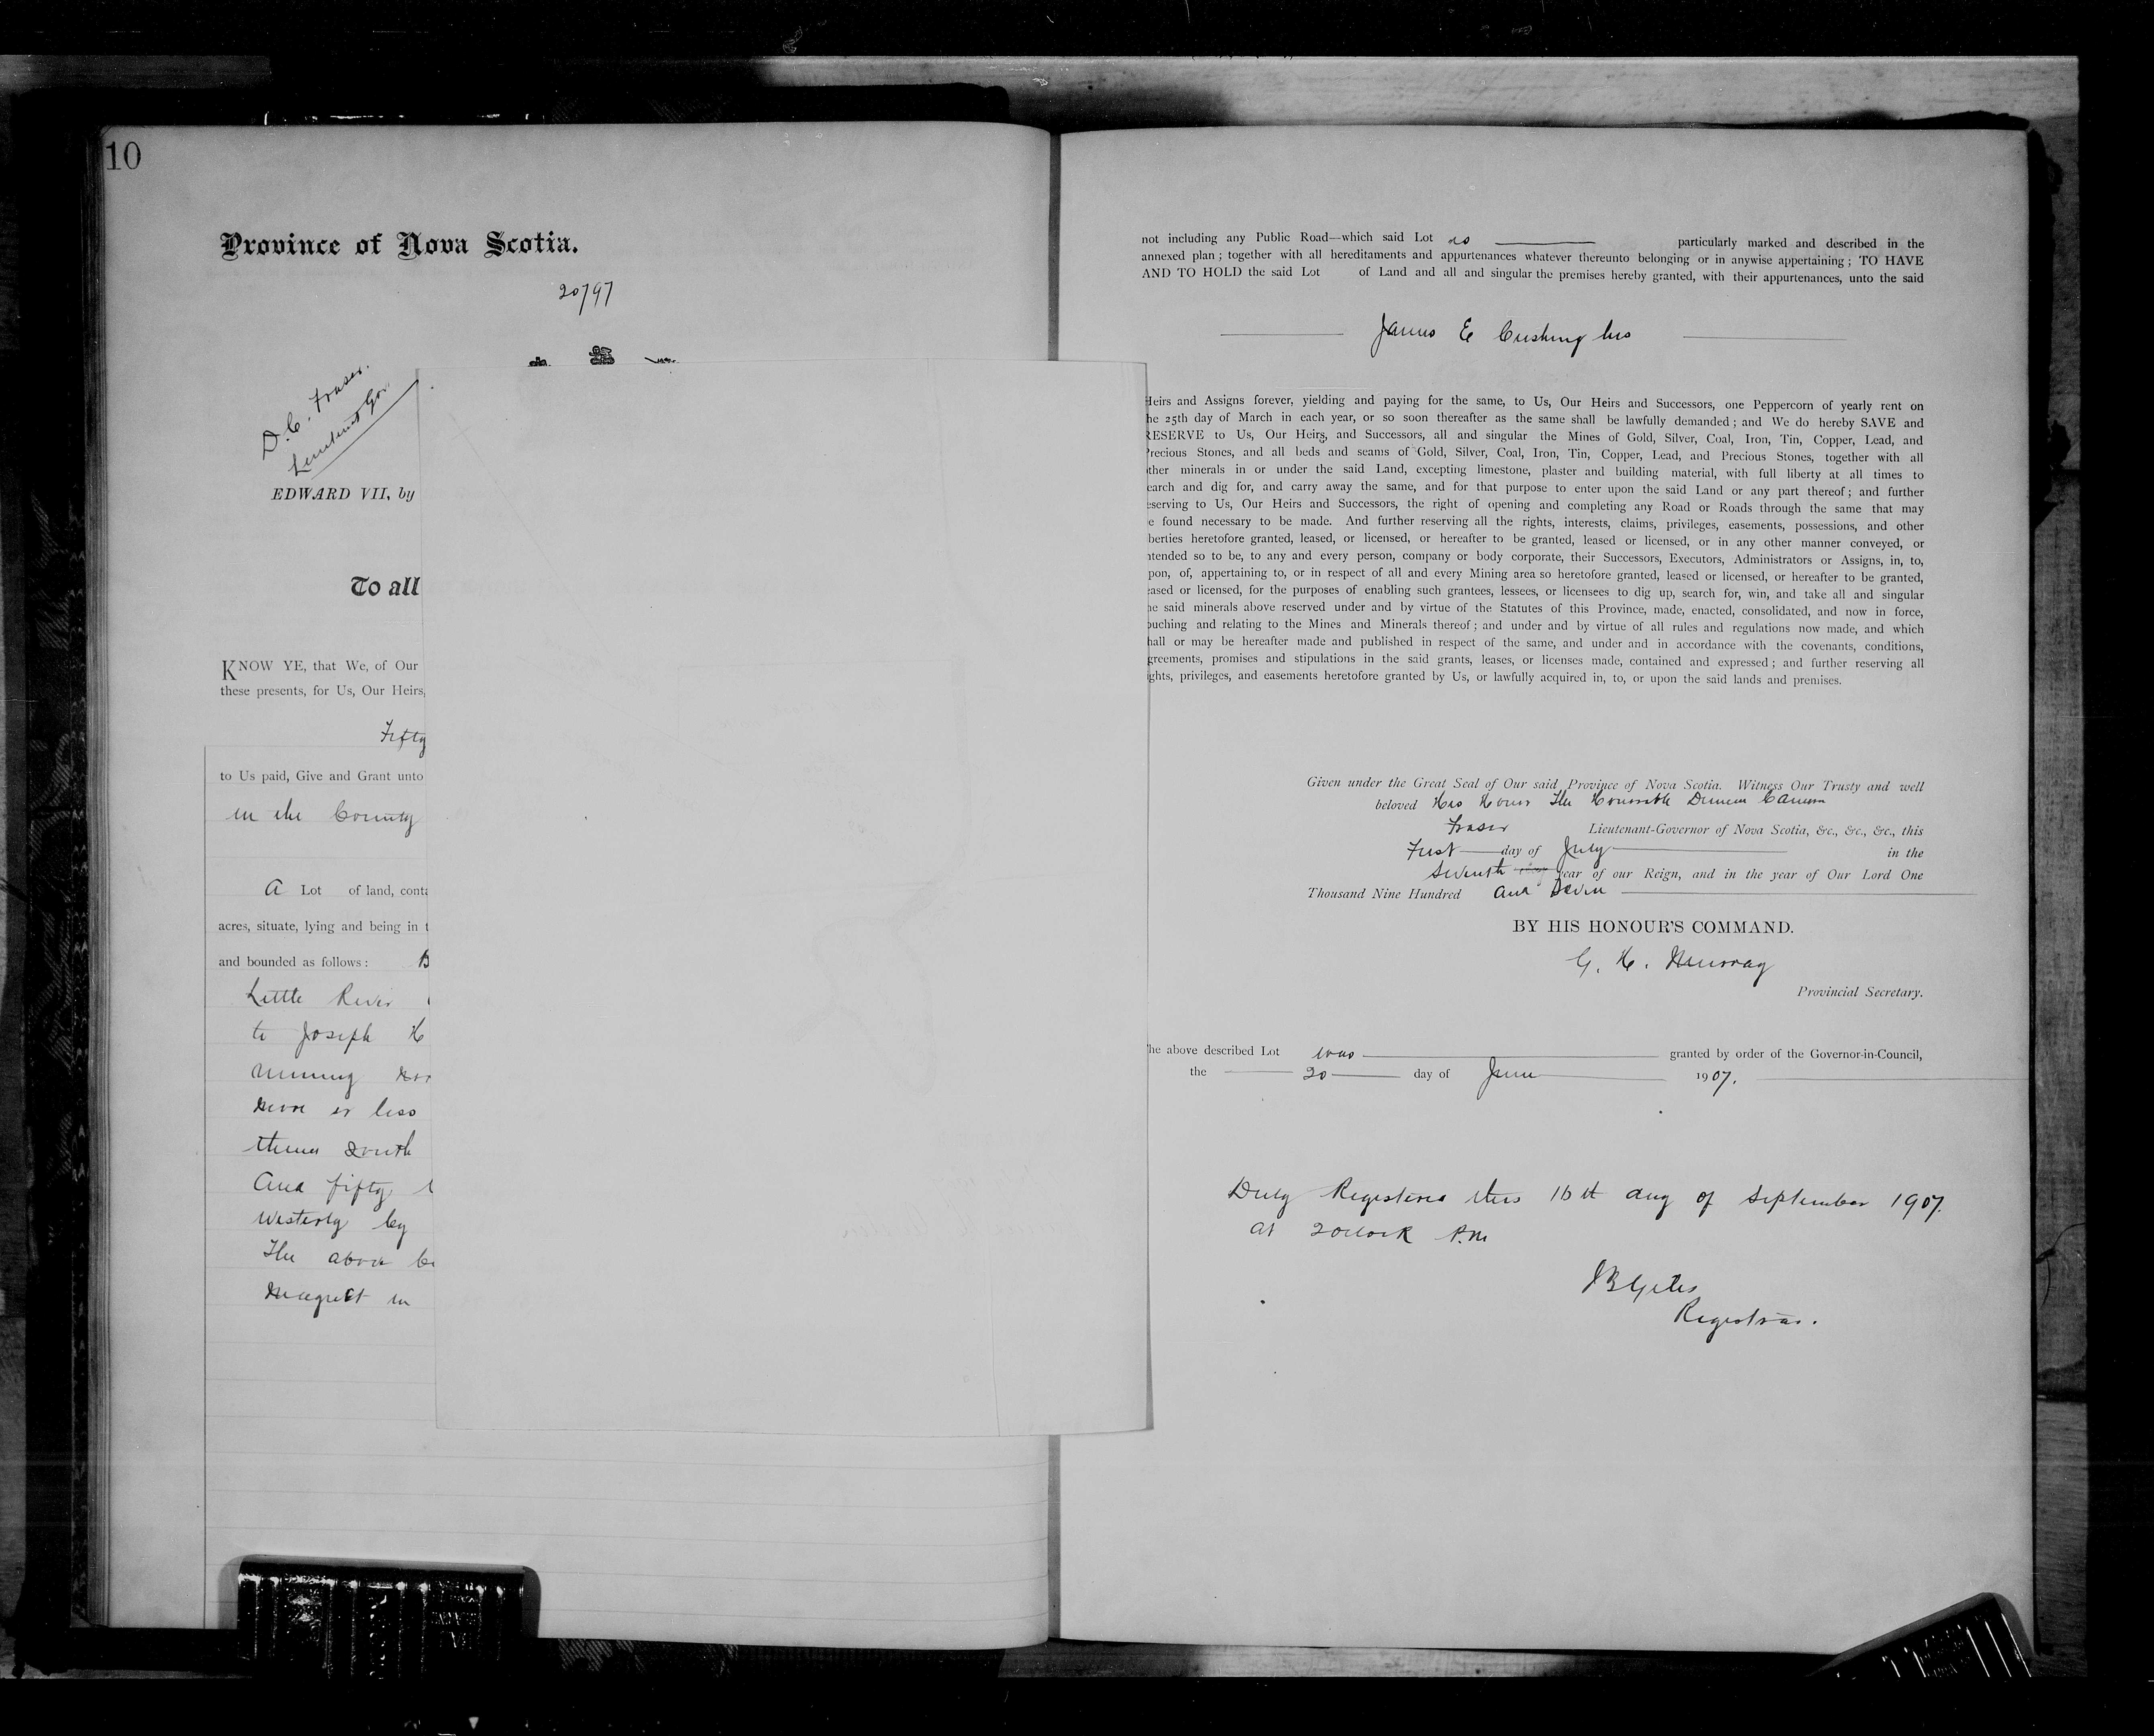 10
Province of Nova Scotia.
20797
D. C. Fraser.
Lieutenant Gov
EDWARD VII, by
To all
KNOW YE, that We, of Our
these presents, for Us, Our Heirs,
Fifty
to Us paid, Give and Grant unto
in the County
A Lot of land, conta
acres, situate, lying and being in t
and bounded as follows: B
Little River
to Joseph H
running
more or less
thence South
and fifty
Westerly by
The above be
Magnet in
not including any Public Road—which said Lot is particularly marked and described in the
annexed plan; together with all hereditaments and appurtenances whatever thereunto belonging or in anywise appertaining; TO HAVE
AND TO HOLD the said Lot of Land and all and singular the premises hereby granted, with their appurtenances, unto the said
James E Cushing his
Heirs and Assigns forever, yielding and paying for the same, to Us, Our Heirs and Successors, one Peppercorn of yearly rent on
he 25th day of March in each year, or so soon thereafter as the same shall be lawfully demanded; and We do hereby SAVE and
RESERVE to Us, Our Heirs, and Successors, all and singular the Mines of Gold, Silver, Coal, Iron, Tin, Copper, Lead, and
Precious Stones, and all beds and seams of Gold, Silver, Coal, Iron, Tin, Copper, Lead, and Precious Stones, together with all
other minerals in or under the said Land, excepting limestone, plaster and building material, with full liberty at all times to
earch and dig for, and carry away the same, and for that purpose to enter upon the said Land or any part thereof; and further
eserving to Us, Our Heirs and Successors, the right of opening and completing any Road or Roads through the same that may
e found necessary to be made. And further reserving all the rights, interests, claims, privileges, easements, possessions, and other
berties heretofore granted, leased, or licensed, or hereafter to be granted, leased or licensed, or in any other manner conveyed, or
ntended so to be, to any and every person, company or body corporate, their Successors, Executors, Administrators or Assigns, in, to,
pon, of, appertaining to, or in respect of all and every Mining area so heretofore granted, leased or licensed, or hereafter to be granted,
eased or licensed, for the purposes of enabling such grantees, lessees, or licensees to dig up, search for, win, and take all and singular
he said minerals above reserved under and by virtue of the Statutes of this Province, made, enacted, consolidated, and now in force,
ouching and relating to the Mines and Minerals thereof; and under and by virtue of all rules and regulations now made, and which
hall or may be hereafter made and published in respect of the same, and under and in accordance with the covenants, conditions,
greements, promises and stipulations in the said grants, leases, or licenses made, contained and expressed; and further reserving all
ights, privileges, and easements heretofore granted by Us, or lawfully acquired in, to, or upon the said lands and premises.
Given under the Great Seal of Our said Province of Nova Scotia. Witness Our Trusty and well
beloved His Honor The Honorable Duncan Cameron
Fraser Lieutenant-Governor of Nova Scotia, &c., &c., &c., this
First day of July in the
Seventh year of our Reign, and in the year of Our Lord One
Thousand Nine Hundred and Seven
BY HIS HONOUR'S COMMAND.
G. H. Murray
Provincial Secretary.
The above described Lot was granted by order of the Governor-in-Council,
the 20 day of June 1907.
Duly Registered this 16th day of September 1907.
at 2 oclock P.M
Registrar.